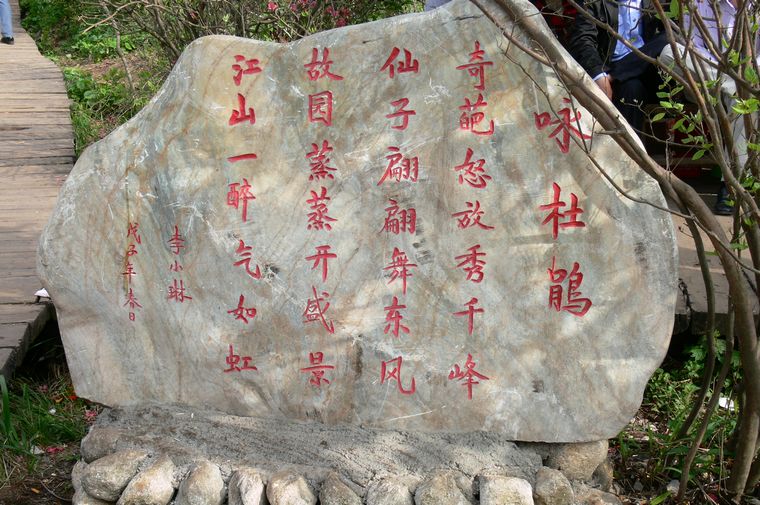 咏杜鹃
奇葩怒放秀千峰
仙子翩翩舞东风
故园蒸蒸开盛景
江山一醉气如虹
李小琳
戊子年春日